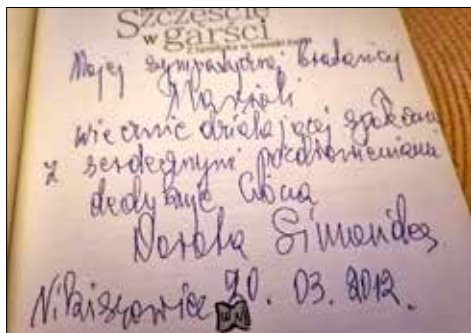 Szczęście
w garści
Mojej sympatycznej bratanicy
wiecznie działającej
z serdecznymi pozdrowieniami
dedykuje Ciocia
Dorota Simonides
Nikiszowiec 20. 03. 2012.